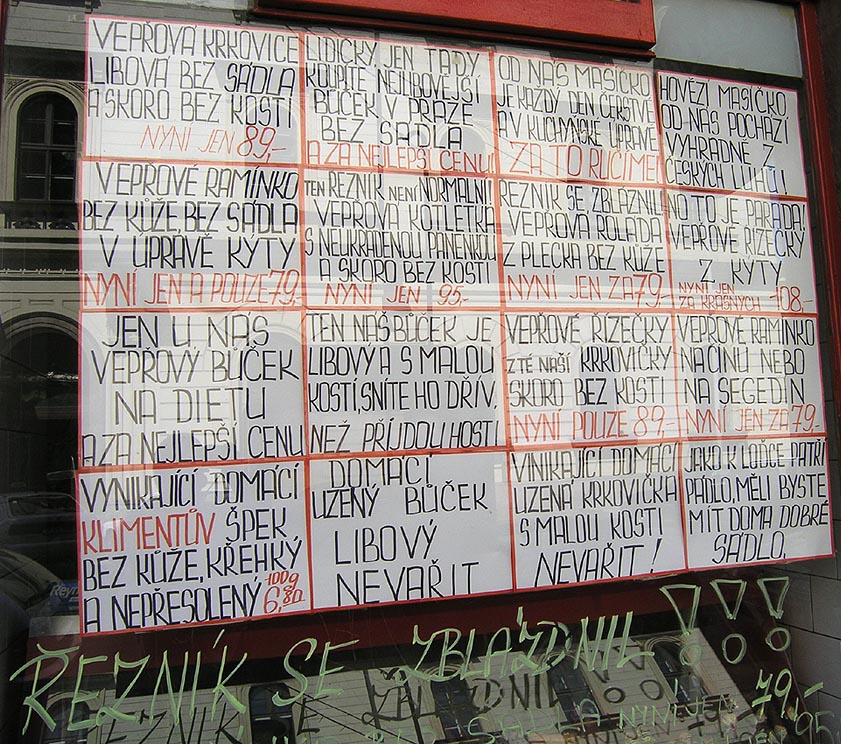 VEPŘOVÁ KRKOVICE
LIBOVÁ BEZ SÁDLA
A SKORO BEZ KOSTI
NYNÍ JEN 89,-
LIDIČKY, JEN TADY
KOUPÍTE NEJLIBOVĚJŠÍ
BŮČEK V PRAZE
BEZ SÁDLA
A ZA NEJLEPŠÍ CENU!
OD NÁS MASÍČKO
JE KAŽDÝ DEN ČERSTVÉ
A V KUCHYŇSKÉ ÚPRAVĚ
ZA TO RUČÍME!
HOVĚZÍ MASÍČKO
OD NÁS POCHÁZÍ
VÝHRADNĚ Z
ČESKÝCH LUHŮ!
VEPŘOVÉ RAMÍNKO
BEZ KŮŽE, BEZ SÁDLA
V ÚPRAVĚ KÝTY
NYNÍ JEN A POUZE 79,-
TEN ŘEZNÍK NENÍ NORMÁLNÍ!
VEPŘOVÁ KOTLETKA
S NEUKRADENOU PANENKOU
A SKORO BEZ KOSTI
NYNÍ JEN 95,-
ŘEZNÍK SE ZBLÁZNIL!
VEPŘOVÁ ROLÁDA
Z PLECKA BEZ KŮŽE
NYNÍ JEN ZA 79,-
NO TO JE PARÁDA!
VEPŘOVÉ ŘÍZEČKY
Z KÝTY
NYNÍ JEN
ZA KRÁSNÝCH -108,-
JEN U NÁS
VEPŘOVÝ BŮČEK
NA DIETU
A ZA NEJLEPŠÍ CENU
TEN NÁŠ BŮČEK JE
LIBOVÝ A S MALOU
KOSTÍ, SNÍTE HO DŘÍV,
NEŽ PŘIJDOU HOSTI
VEPŘOVÉ ŘÍZEČKY
Z TÉ NAŠÍ KRKOVIČKY
SKORO BEZ KOSTI
NYNÍ POUZE 89,-
VEPŘOVÉ RAMÍNKO
NA ČÍNU NEBO
NA SEGEDÍN
NYNÍ JEN ZA 79,-
VYNIKAJÍCÍ DOMÁCÍ
KLIMENTŮV ŠPEK,
BEZ KŮŽE, KŘEHKÝ
A NEPŘESOLENÝ 100g 6,80
DOMÁCÍ
UZENÝ BŮČEK
LIBOVÝ
NEVAŘIT
VNIKAJÍCÍ DOMÁCÍ
UZENÁ KRKOVIČKA
S MALOU KOSTÍ
NEVAŘIT!
JAKO K LOĎCE PATŘÍ
PÁDLO, MĚLI BYSTE
MÍT DOMA DOBRÉ
SÁDLO,
ŘEZNÍK SE ZBLÁZNIL!!!
SÁDLA NYNÍ JEN 79,-